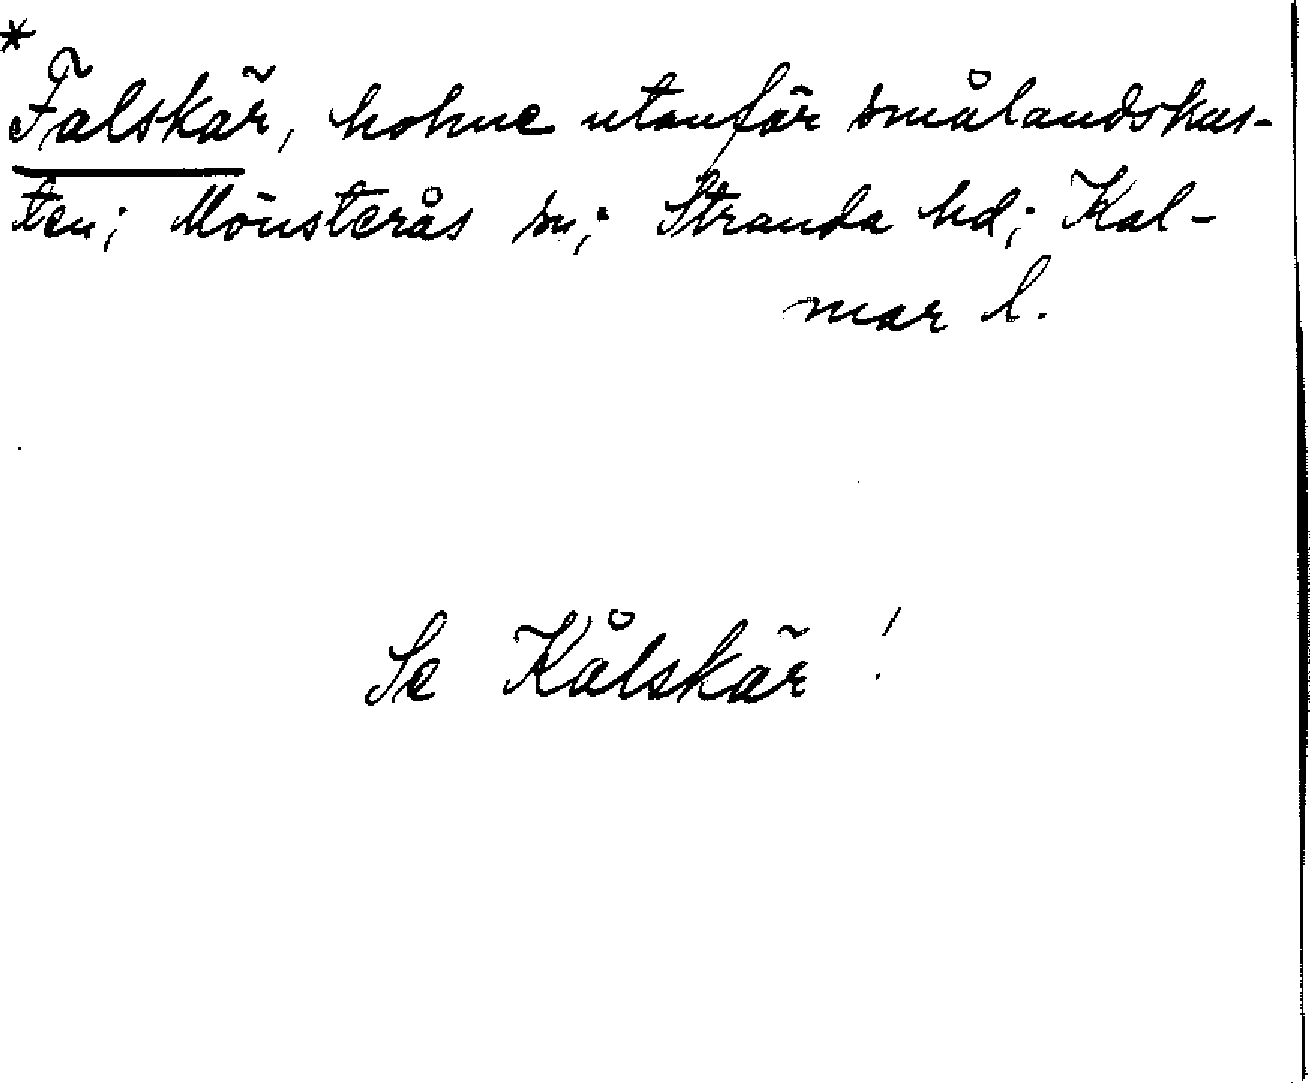 *
Falskär, holme utanför smålandskus-
ten; Mönsterås sn; Stranda hd; Kal-
mar l.
Se Kålskär!